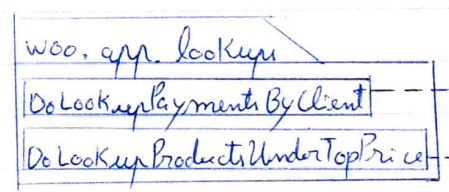 woo.app.lookup
DoLookupPaymentsByClient
DoLookupProductsUnderTopPrice